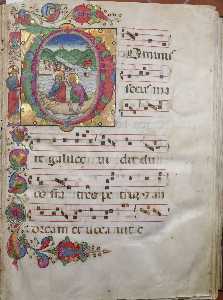 Dominus
secus ma
re galilee vi dit du
os fra tres pe trum an
dream et vocavit e